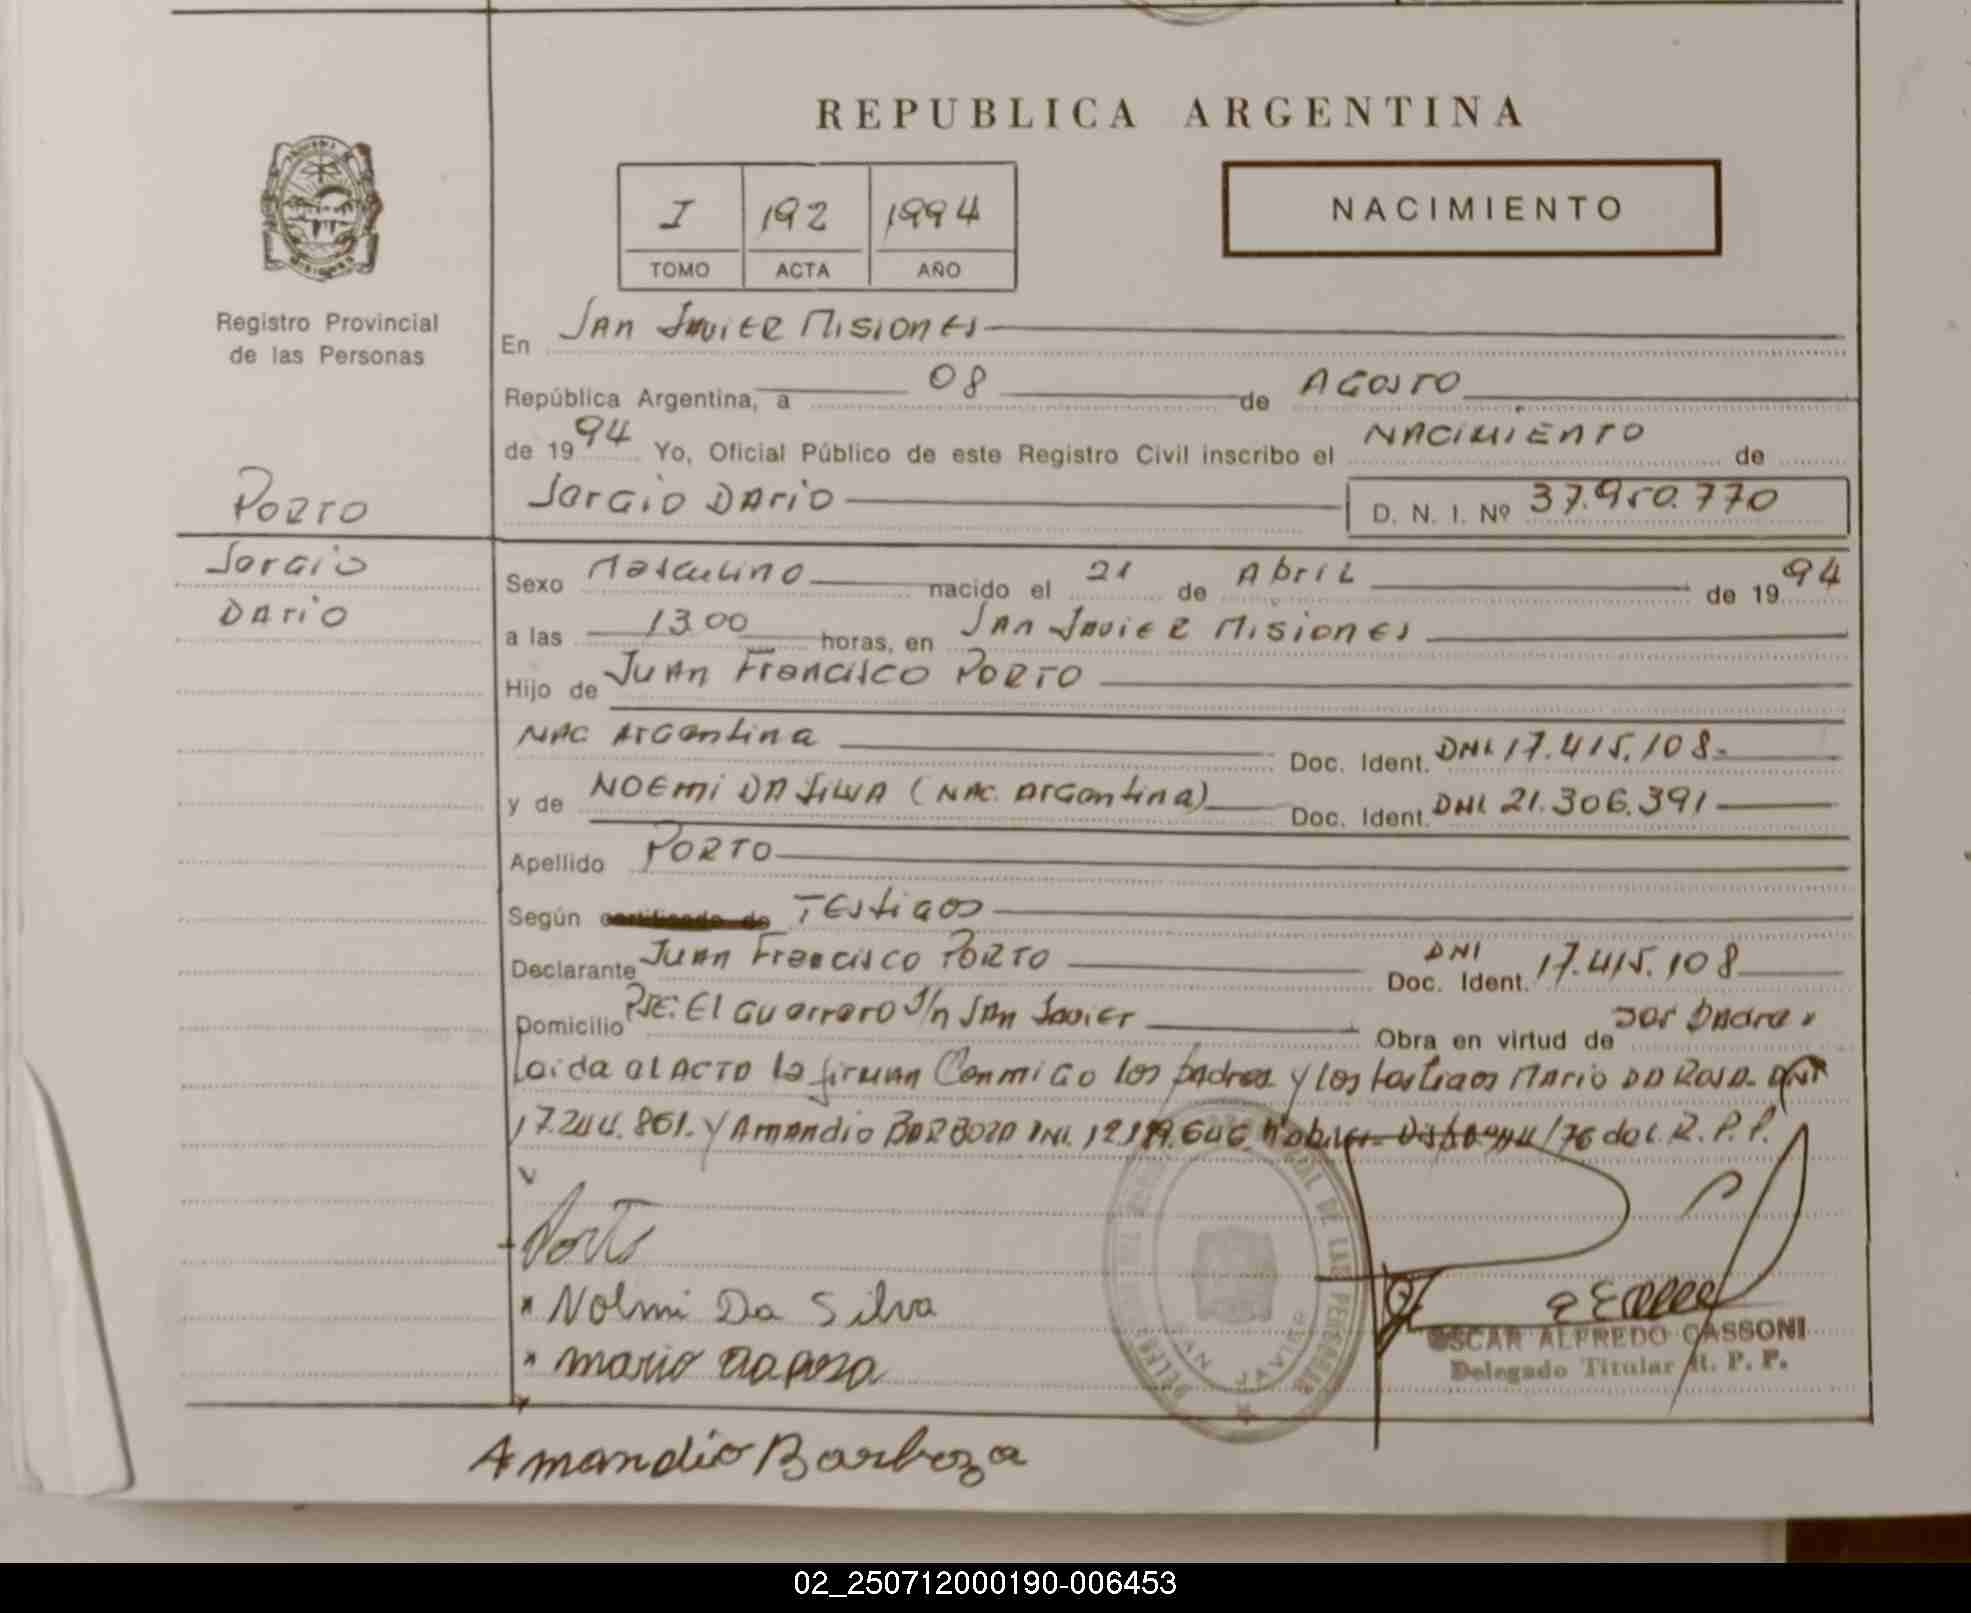 REPUBLICA ARGENTINA
I 192 1994
TOMO ACTA AÑO
NACIMIENTO
Registro Provincial
de las Personas
En San Javier Misiones
República Argentina, a 08 de Agosto
de 1994 Yo, Oficial Público de este Registro Civil inscribo el NACIMIENTO de
Sergio Dario D. N. I. Nº 37.950.770
PORTO
Sergio
Dario
Sexo Masculino nacido el 21 de Abril de 1994
a las 13.00 horas, en San Javier Misiones
Hijo de Juan Francisco PORTO
Nac Argentina Doc. Ident. DNI 17.415.108.
y de NOEMI DA SILVA (Nac. Argentina) Doc. Ident. DNI 21.306.391
Apellido PORTO
Según certificado de Testigos
Declarante Juan Francisco PORTO Doc. Ident. DNI 17.415.108
Domicilio Pje: El Guerrero S/n San Javier Obra en virtud de ser Padre.
Leida el Acta la firman Conmigo los padres y los testigos Mario DA ROSA. DNI
17.244.861. y Amandio BARBOZA DNI. 12.119.646 /76 del R.P.P.
Porto
* Noemi Da Silva
* Mario da Rosa
Amandio Barboza
SAN JAVIER
OSCAR ALFREDO CASSONI
Delegado Titular R. P. P.
02_250712000190-006453